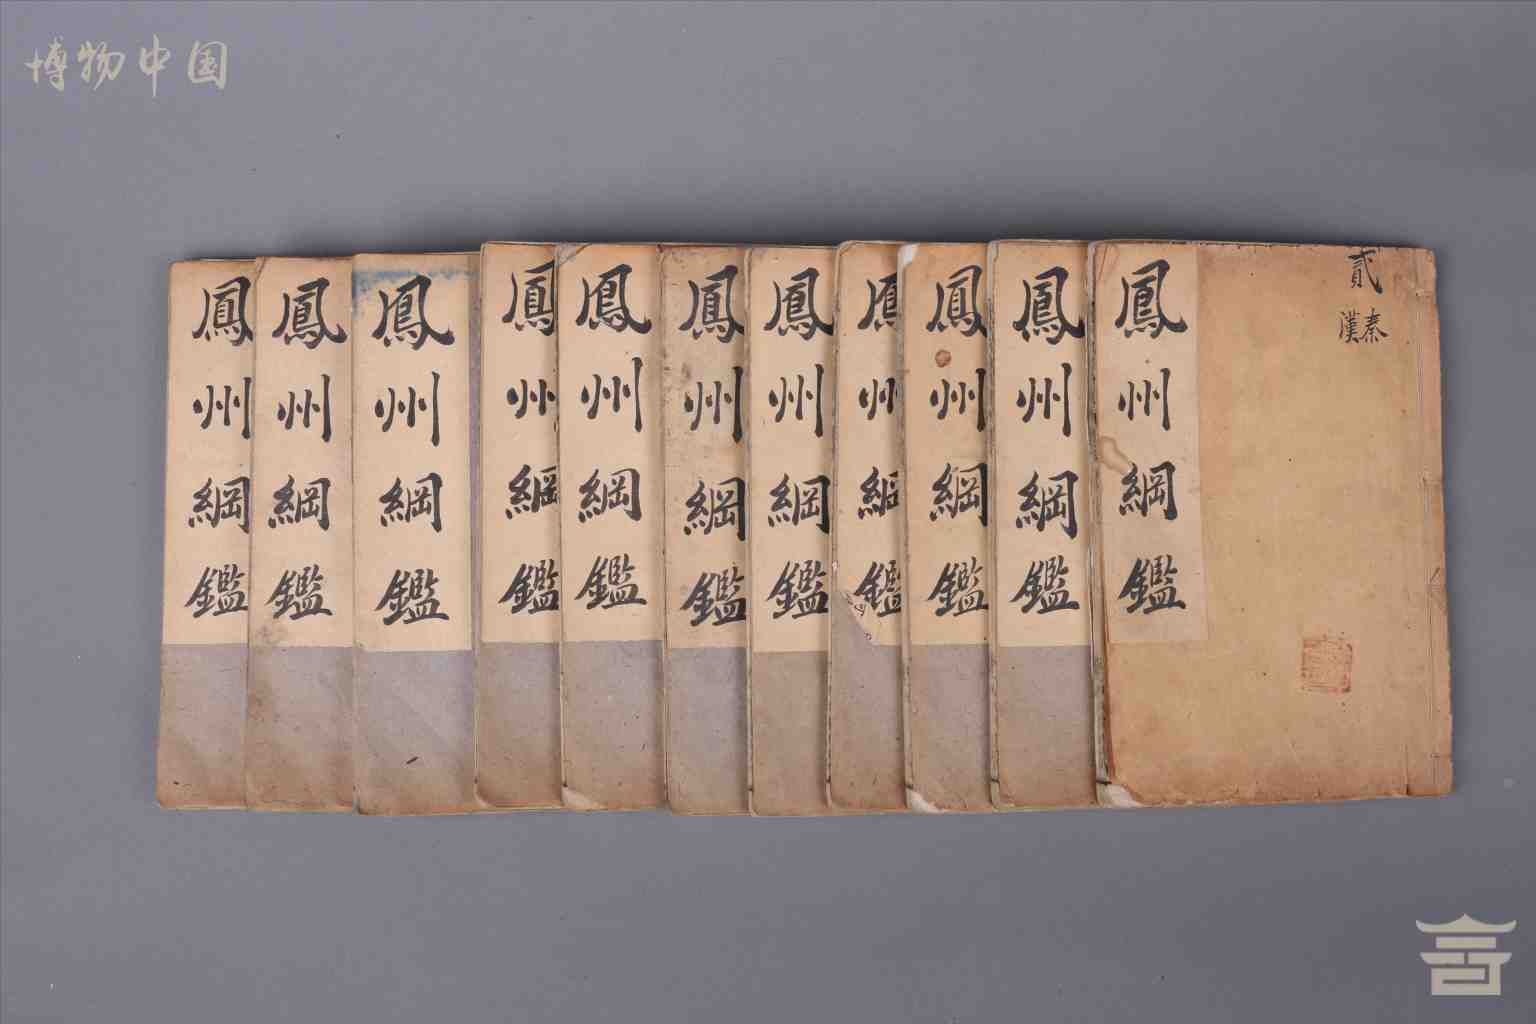 博物中国
鳳州綱鑑
鳳州綱鑑
鳳州綱鑑
鳳州綱鑑
鳳州綱鑑
鳳州綱鑑
鳳州綱鑑
鳳州綱鑑
鳳州綱鑑
鳳州綱鑑
鳳州綱鑑
貳
秦
漢